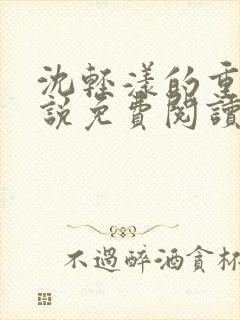 沈輕漾的重
說免費閱讀
不過醉酒貪杯